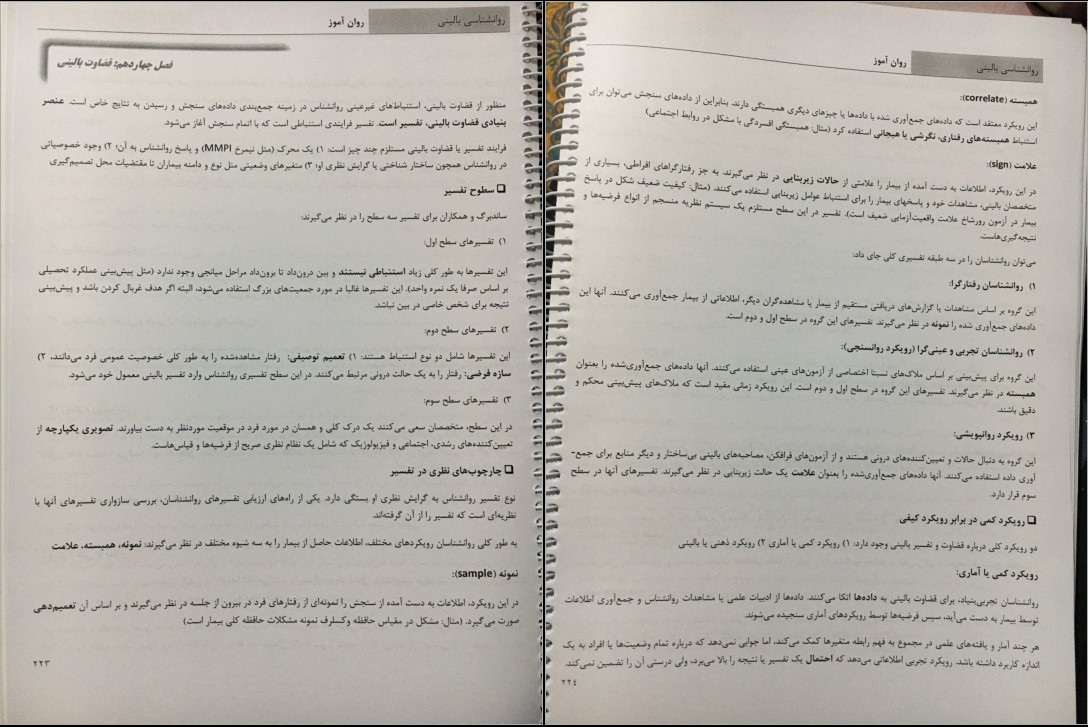 روانشناسی بالینی
روان آموز
فصل چهاردهم: قضاوت بالینی
منظور از قضاوت بالینی، استنباط‌های غیرعینی روانشناس در زمینه جمع‌بندی داده‌های سنجش و رسیدن به نتایج خاص است. عنصر
بنیادی قضاوت بالینی، تفسیر است. تفسیر فرایندی استنباطی است که با اتمام سنجش آغاز می‌شود.
فرایند تفسیر یا قضاوت بالینی مستلزم چند چیز است: ۱) یک محرک (مثل نیمرخ MMPI) و پاسخ روانشناس به آن؛ ۲) وجود خصوصیاتی
در روانشناس همچون ساختار شناختی یا گرایش نظری او؛ ۳) متغیرهای وضعیتی مثل نوع و دامنه بیماران تا مقتضیات محل تصمیم‌گیری
❑ سطوح تفسیر
ساندبرگ و همکاران برای تفسیر سه سطح را در نظر می‌گیرند:
۱) تفسیرهای سطح اول:
این تفسیرها به طور کلی زیاد استنباطی نیستند و بین درون‌داد تا برون‌داد مراحل میانجی وجود ندارد (مثل پیش‌بینی عملکرد تحصیلی
بر اساس صرفا یک نمره واحد). این تفسیرها غالبا در مورد جمعیت‌های بزرگ استفاده می‌شود، البته اگر هدف غربال کردن باشد و پیش‌بینی
نتیجه برای شخص خاصی در بین نباشد.
۲) تفسیرهای سطح دوم:
این تفسیرها شامل دو نوع استنباط هستند: ۱) تعمیم توصیفی: رفتار مشاهده‌شده را به طور کلی خصوصیت عمومی فرد می‌دانند، ۲)
سازه فرضی: رفتار را به یک حالت درونی مرتبط می‌کنند. در این سطح تفسیری روانشناس وارد تفسیر بالینی معمول خود می‌شود.
۳) تفسیرهای سطح سوم:
در این سطح، متخصصان سعی می‌کنند یک درک کلی و همسان در مورد فرد در موقعیت موردنظر به دست بیاورند. تصویری یکپارچه از
تعیین‌کننده‌های رشدی، اجتماعی و فیزیولوژیک که شامل یک نظام نظری صریح از فرضیه‌ها و قیاس‌هاست.
❑ چارچوب‌های نظری در تفسیر
نوع تفسیر روانشناس به گرایش نظری او بستگی دارد. یکی از راه‌های ارزیابی تفسیرهای روانشناسان، بررسی سازواری تفسیرهای آنها با
نظریه‌ای است که تفسیر را از آن گرفته‌اند.
به طور کلی روانشناسان رویکردهای مختلف، اطلاعات حاصل از بیمار را به سه شیوه مختلف در نظر می‌گیرند: نمونه، همبسته، علامت
نمونه (sample):
در این رویکرد، اطلاعات به دست آمده از سنجش را نمونه‌ای از رفتارهای فرد در بیرون از جلسه در نظر می‌گیرند و بر اساس آن تعمیم‌دهی
صورت می‌گیرد. (مثال: مشکل در مقیاس حافظه وکسلر نمونه مشکلات حافظه کلی بیمار است)
۲۲۳
روانشناسی بالینی
روان آموز
همبسته (correlate):
این رویکرد معتقد است که داده‌های جمع‌آوری شده با داده‌ها یا چیزهای دیگری همبستگی دارند. بنابراین از داده‌های سنجش می‌توان برای
استنباط همبسته‌های رفتاری، نگرشی یا هیجانی استفاده کرد (مثال: همبستگی افسردگی با مشکل در روابط اجتماعی)
علامت (sign):
در این رویکرد، اطلاعات به دست آمده از بیمار را علامتی از حالات زیربنایی در نظر می‌گیرند. به جز رفتارگراهای افراطی، بسیاری از
متخصصان بالینی، مشاهدات خود و پاسخهای بیمار را برای استنباط عوامل زیربنایی استفاده می‌کنند. (مثال: کیفیت ضعیف شکل در پاسخ
بیمار در آزمون رورشاخ علامت واقعیت‌آزمایی ضعیف است). تفسیر در این سطح مستلزم یک سیستم نظریه منسجم از انواع فرضیه‌ها و
نتیجه‌گیری‌هاست.
می‌توان روانشناسان را در سه طبقه تفسیری کلی جای داد:
۱) روانشناسان رفتارگرا:
این گروه بر اساس مشاهدات یا گزارش‌های دریافتی مستقیم از بیمار یا مشاهده‌گران دیگر، اطلاعاتی از بیمار جمع‌آوری می‌کنند. آنها این
داده‌های جمع‌آوری شده را نمونه در نظر می‌گیرند. تفسیرهای این گروه در سطح اول و دوم است.
۲) روانشناسان تجربی و عینی‌گرا (رویکرد روانسنجی):
این گروه برای پیش‌بینی بر اساس ملاک‌های نسبتا اختصاصی از آزمون‌های عینی استفاده می‌کنند. آنها داده‌های جمع‌آوری‌شده را بعنوان
همبسته در نظر می‌گیرند. تفسیرهای این گروه در سطح اول و دوم است. این رویکرد زمانی مفید است که ملاک‌های پیش‌بینی محکم و
دقیق باشند.
۳) رویکرد روانپویشی:
این گروه به دنبال حالات و تعیین‌کننده‌های درونی هستند و از آزمون‌های فرافکن، مصاحبه‌های بالینی بی‌ساختار و دیگر منابع برای جمع-
آوری داده استفاده می‌کنند. آنها داده‌های جمع‌آوری‌شده را بعنوان علامت یک حالت زیربنایی در نظر می‌گیرند. تفسیرهای آنها در سطح
سوم قرار دارد.
❑ رویکرد کمی در برابر رویکرد کیفی
دو رویکرد کلی درباره قضاوت و تفسیر بالینی وجود دارد: ۱) رویکرد کمی یا آماری ۲) رویکرد ذهنی یا بالینی
رویکرد کمی یا آماری:
روانشناسان تجربی‌بنیاد، برای قضاوت بالینی به داده‌ها اتکا می‌کنند. داده‌ها از ادبیات علمی یا مشاهدات روانشناس و جمع‌آوری اطلاعات
توسط بیمار به دست می‌آید، سپس فرضیه‌ها توسط رویکردهای آماری سنجیده می‌شوند.
هر چند آمار و یافته‌های علمی در مجموع به فهم رابطه متغیرها کمک می‌کند، اما جوابی نمی‌دهد که درباره تمام وضعیت‌ها یا افراد به یک
اندازه کاربرد داشته باشد. رویکرد تجربی اطلاعاتی می‌دهد که احتمال یک تفسیر یا نتیجه را بالا می‌برد، ولی درستی آن را تضمین نمی‌کند.
۲۲٤